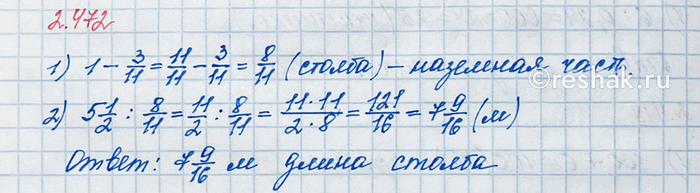 2.472
1) 1 - 3/11 = 11/11 - 3/11 = 8/11 (столба) - наземная част.
2) 5 1/2 : 8/11 = 11/2 : 8/11 = 11·11/2·8 = 121/16 = 7 9/16 (м)
Ответ: 7 9/16 м длина столба
reshak.ru